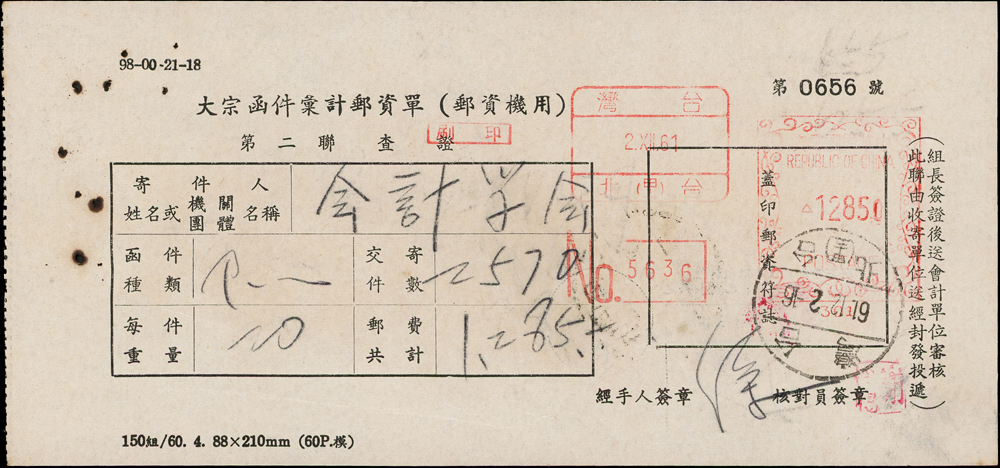 98-00-21-18
第 0656 號
大宗函件彙計郵資單(郵資機用)
第二聯 查證
印刷
寄件人
姓名或機關團體名稱
會計學會
函件種類
交寄件數
2570
每件重量
20
郵費共計
1,285.-
台灣
2.XII.61
台北(甲)
No. 5636
REPUBLIC OF CHINA
△1285.0
蓋印郵資符誌
61.12.2-16
台灣
(組長簽證後送會計單位審核
此聯由收寄單位送經封發投遞)
經手人簽章
核對員簽章
150組/60. 4. 88×210mm (60P.模)